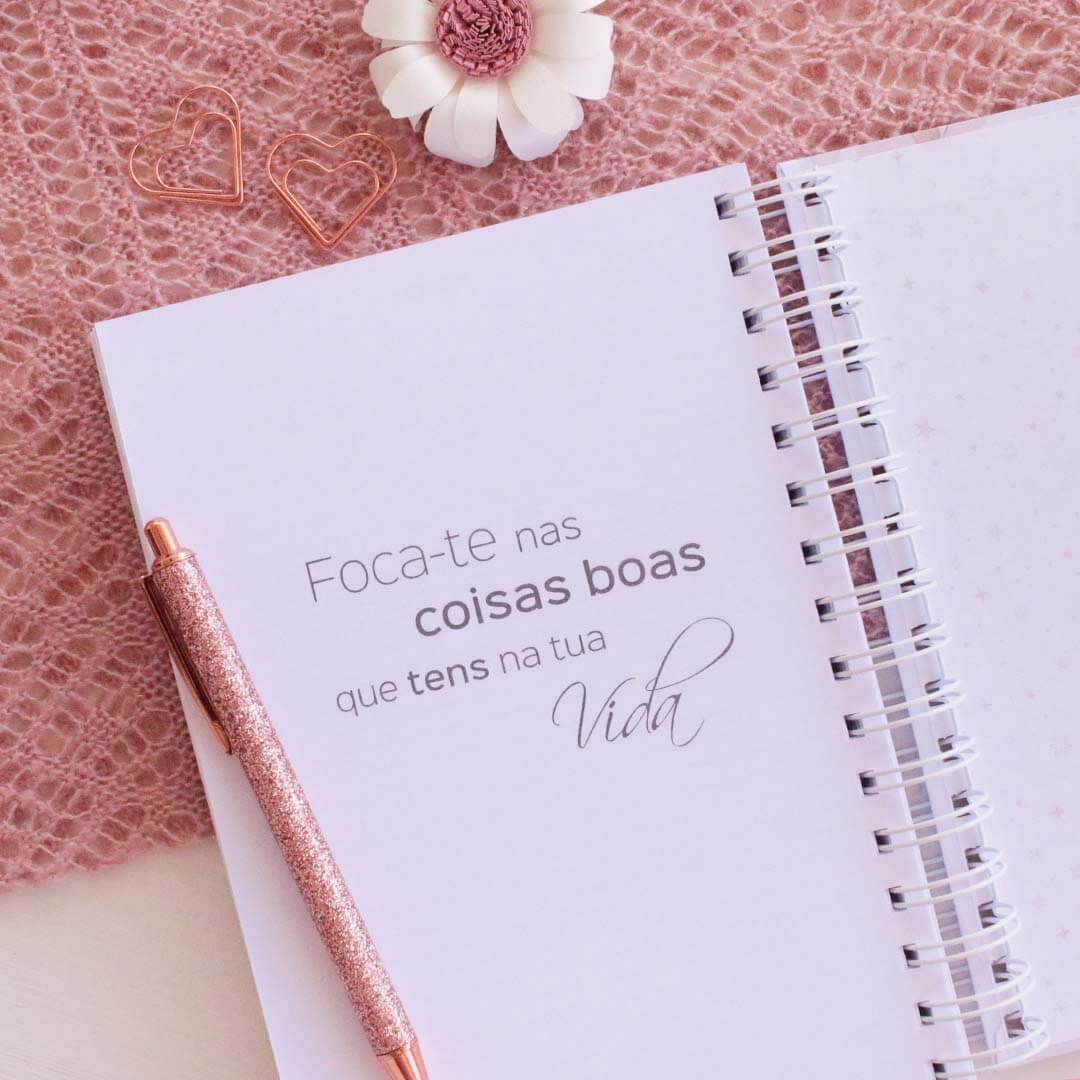 Foca-te nas
coisas boas
que tens na tua
Vida